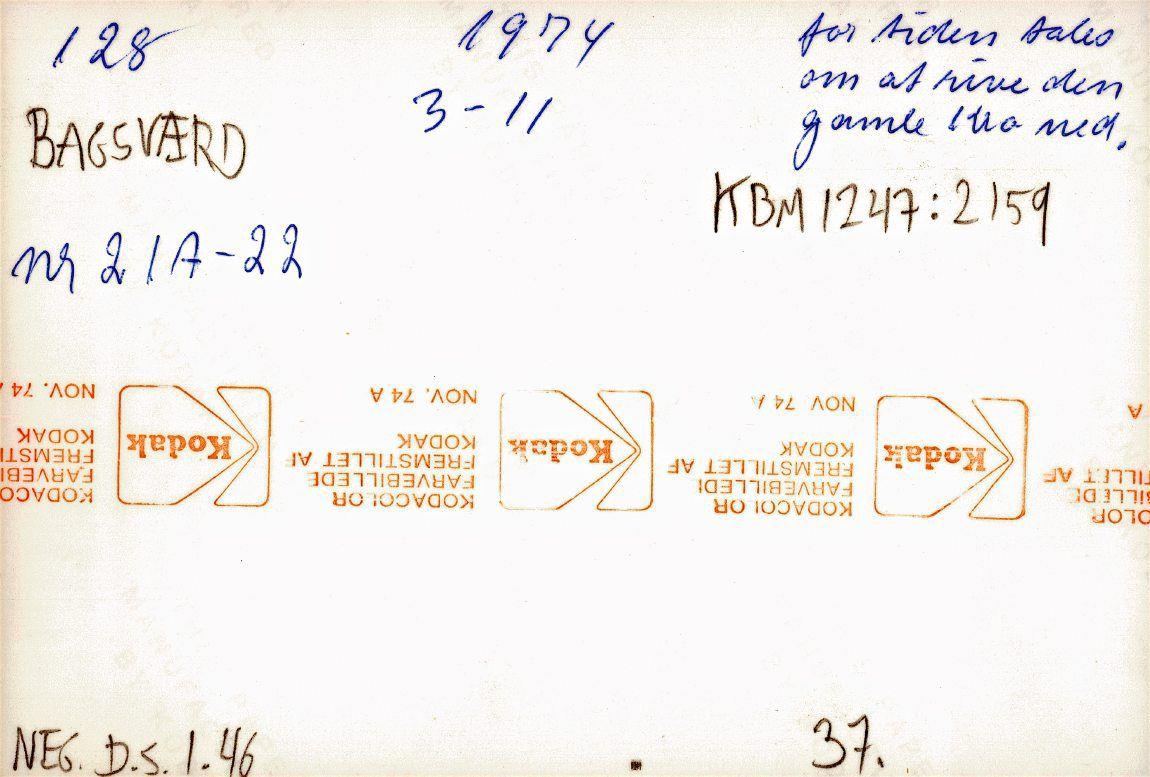 128
1974
for tiden tales
om at rive den
gamle kro ned.
3-11
BAGSVÆRD
KBM 1247:2159
nr 21A-22
NOV. 74 A
NOV. 74 A
NOV. 74 A
A
Kodak
Kodak
Kodak
KODACO
FARVEBI
FREMSTI
KODAK
KODACOLOR
FARVEBILLEDE
FREMSTILLET AF
KODAK
KODACOLOR
FARVEBILLEDE
FREMSTILLET AF
KODAK
OLOR
BILLEDE
TILLET AF
NEG. D.S. 1.46
37.